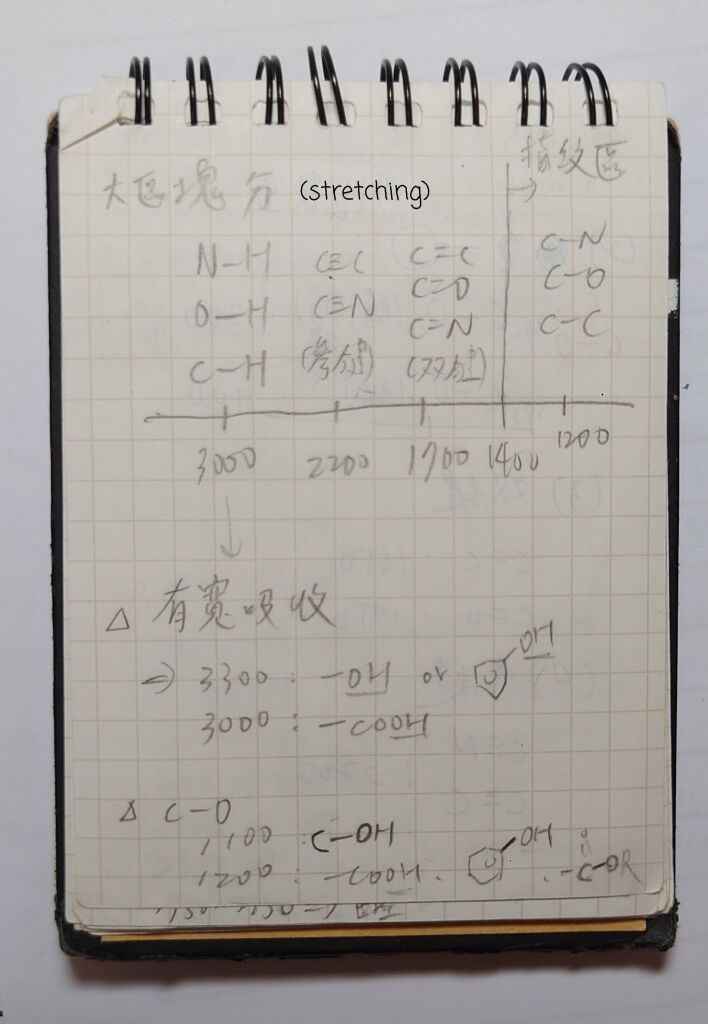 指紋區
大區塊分 (stretching) →
N-H C≡C C=C C-N
O-H C≡N C=O C-O
C-H (參鍵) C=N C-C
(双鍵)
3000 2200 1700 1400 1200
↓
△ 有寬吸收
⇒ 3300 : -OH or OH
3000 : -COOH
△ C-O
1100 : C-OH
1200 : -COOH . OH . -C-OR
O